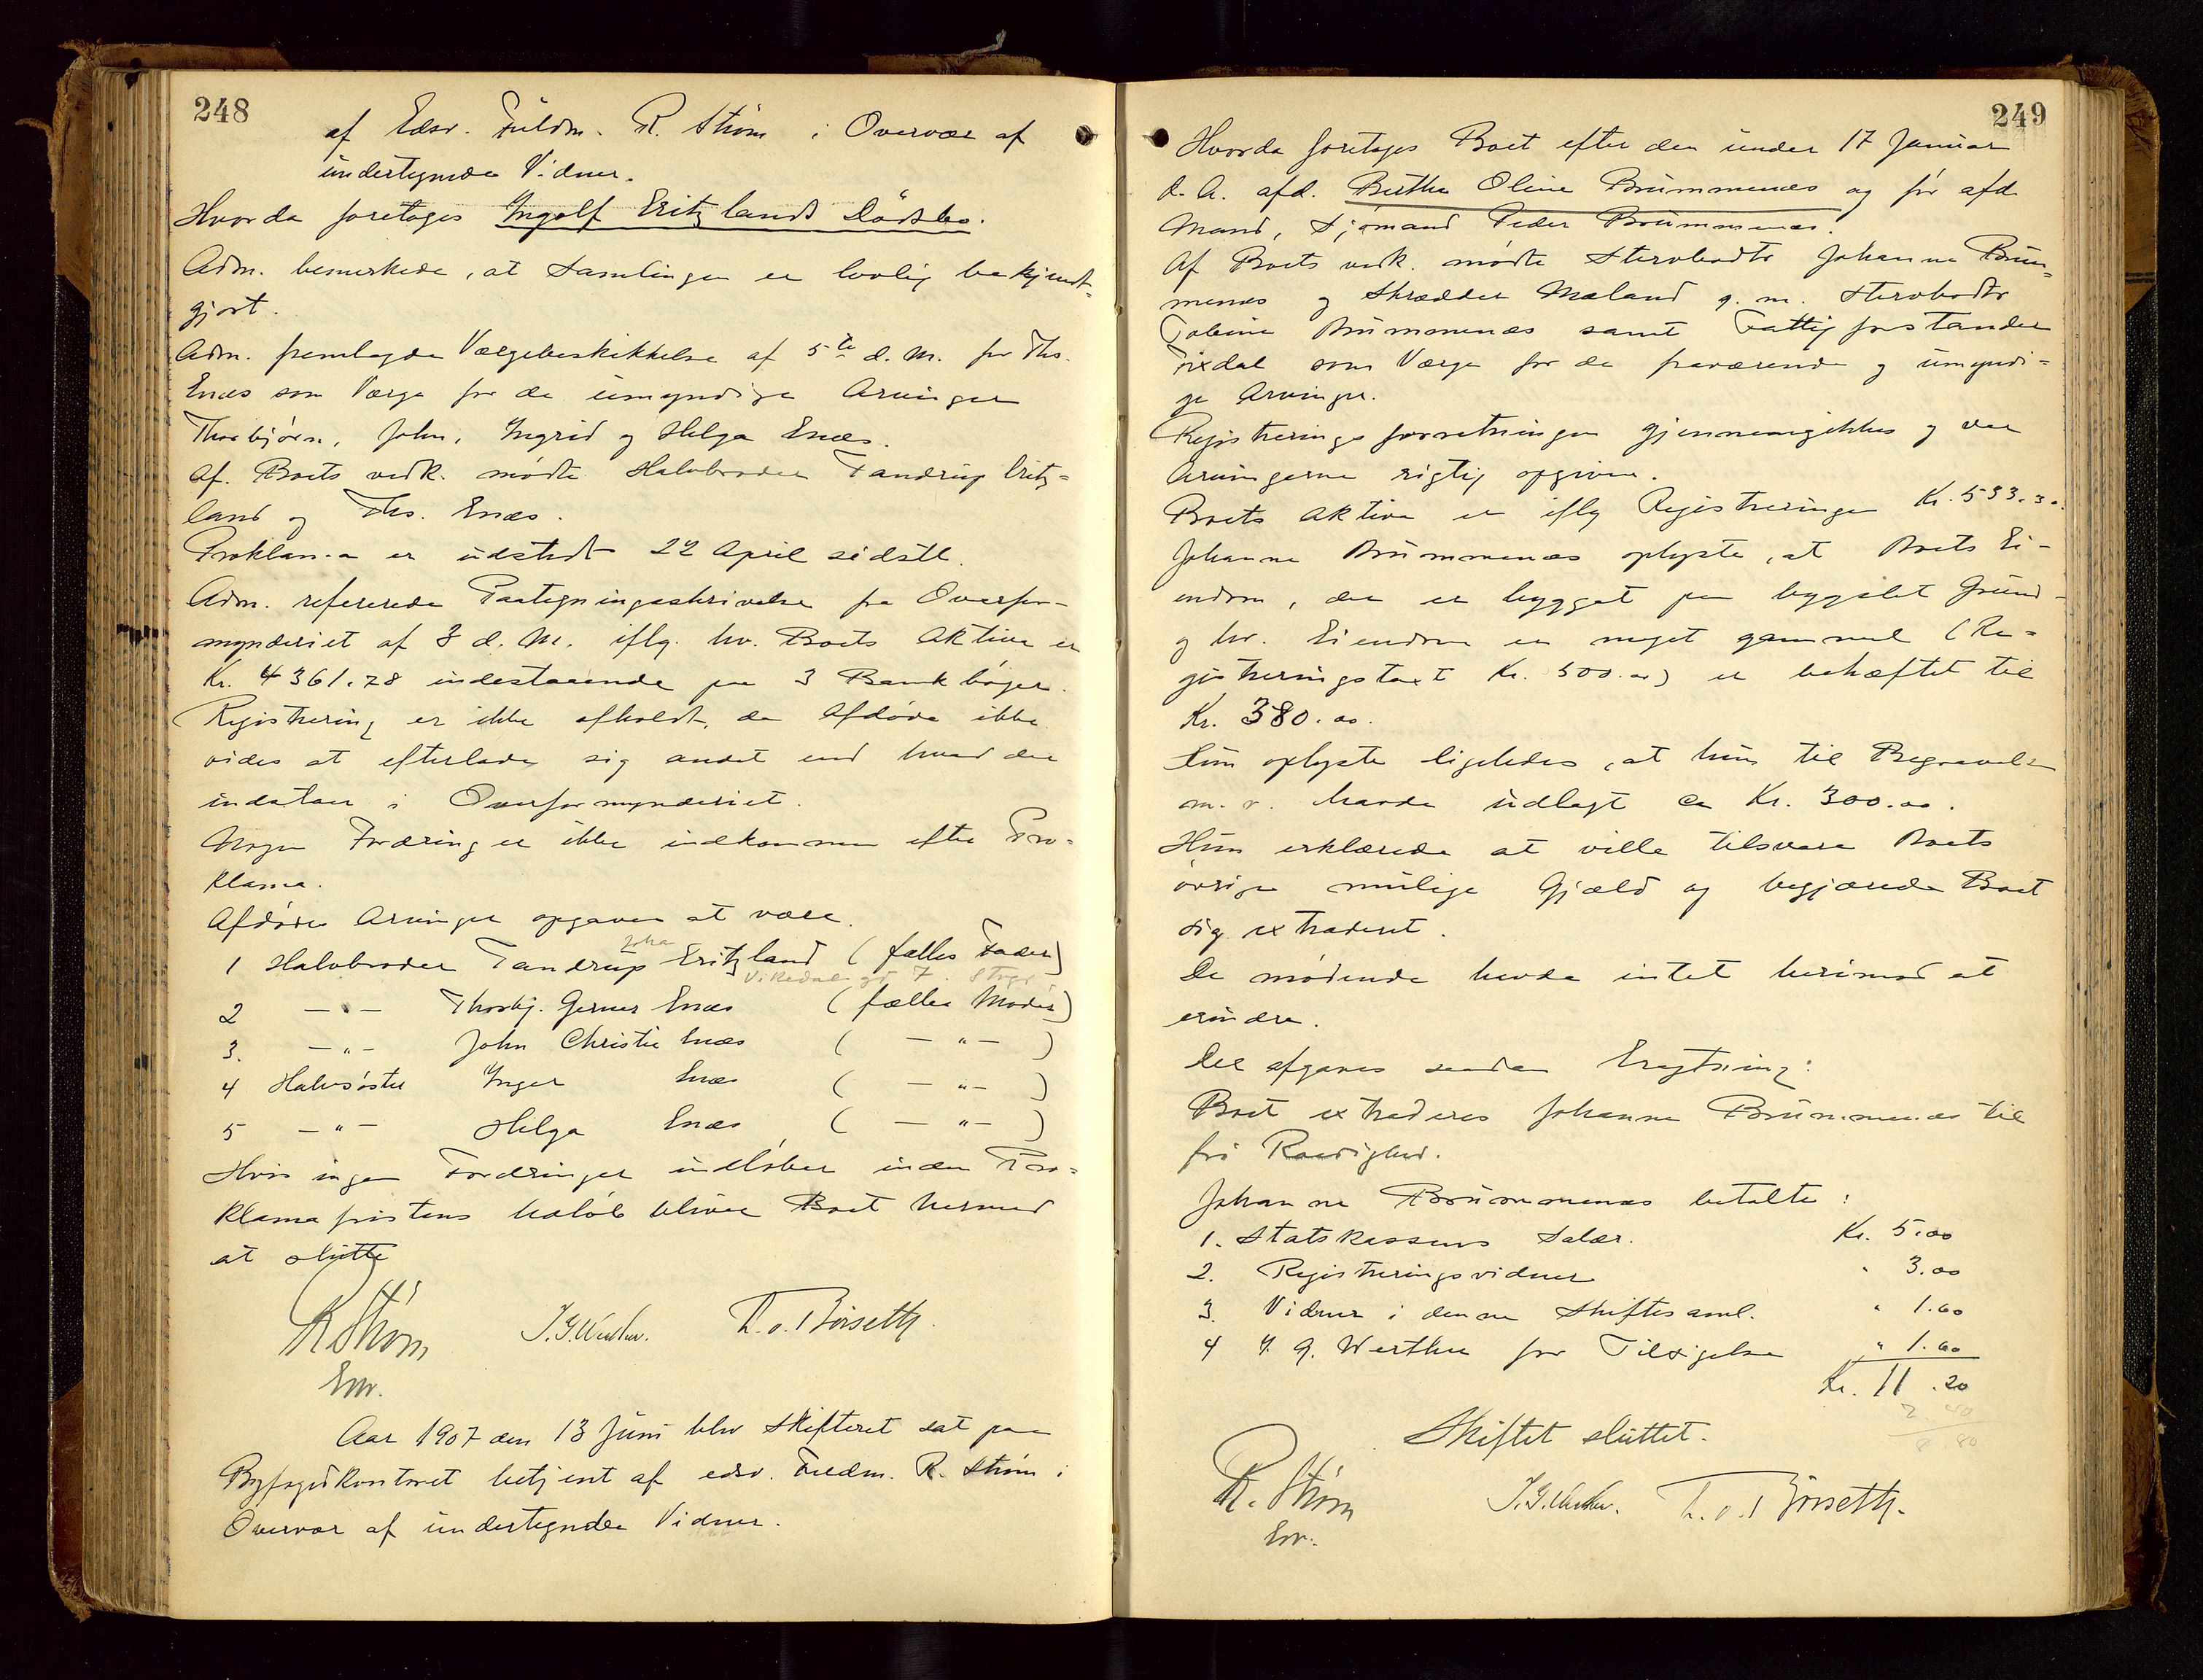 248
af Edsv. Fuldm. R. Strøm i Overvær af
undertegnede Vidner.
Hvorda foretoges Ingolf Eritzlands Dødsbo.
Adm. bemerkede, at Samlingen er lovlig bekjendt-
gjort.
Adm. fremlagde Værgebeskikkelse af 5te d. M. for Ths.
Enæs som Værge for de umyndige Arvinger
Thorbjørn, John, Ingrid og Helga Enæs.
Af Boets vedk. mødte Halvbroder Tandrup Eritz-
land og Ths. Enæs.
Proklama er udstedt 22 April sidstl.
Adm. refererede Paategningsskrivelse fra Overfor-
mynderiet af 3 d. M. iflg. hv. Boets Aktiva er
Kr. 4361.78 indestaaende paa 3 Bankbøger.
Registrering er ikke afholdt, da Afdøde ikke
vides at efterlade sig andet end hvad der
indestaar i Overformynderiet.
Nogen Fordring er ikke indkommen efter Pro-
klama.
Afdødes Arvinger opgaves at være
Joha
1 Halvbroder Tandrup Eritzland (fælles Fader)
Vikedal
2 — " — Thorbj. Gerner Enæs (fælles Moder)
3. — " — John Christie Enæs ( — " — )
4 Halvsøster Inger Enæs ( — " — )
5 — " — Helga Enæs ( — " — )
Hvis ingen Fordringer indløber inden Pro-
klamafristens Udløb bliver Boet hermed
at slutte
R Strøm J. G. Werther. T. O. Børseth.
Em.
Aar 1907 den 13 Juni blev Skifteret sat paa
Byfogdkontoret betjent af edsv. Fuldm. R. Strøm i
Overvær af undertegnede Vidner.
249
Hvorda foretoges Boet efter den under 17 Januar
d. A. afd. Berthe Oline Brummenæs og før afd.
Mand, Sjømand Peder Brummenæs.
Af Boets vedk. mødte Stervbodtr Johanne Brum-
menæs og Skrædder Mæland g. m. Stervbodtr
Tobine Brummenæs samt Fattigforstander
Tixdal som Værge for de fraværende og umyndi-
ge Arvinger.
Registreringsforretningen gjennemgikkes og var
Arvingerne rigtig opgivne.
Boets Aktiva er iflg Registreringen Kr. 533.30.
Johanne Brummenæs oplyste, at Boets Ei-
endom, der er bygget paa bygslet Grund
og hv. Eiendom er meget gammel (Re-
gistreringstaxt Kr. 500.00) er behæftet til
Kr. 380.00.
Hun oplyste ligeledes, at hun til Begravelse
m. v. havde udlagt ca Kr. 300.00.
Hun erklærede at ville tilsvare Boets
øvrige mulige Gjæld og begjærede Boet
sig extraderet.
De mødende havde intet herimod at
erindre.
Der afgaves saadan Eragtning:
Boet extraderes Johanne Brummenæs til
fri Raadighed.
Johanne Brummenæs betalte:
1. Statskassens Salær. Kr. 5.00
2. Registreringsvidner " 3.00
3. Vidner i denne Skiftesaml. " 1.60
4 J. G. Werther for Tilsigelse " 1.60
Kr. 11.20
2 40
8 80
Skiftet sluttet.
R. Strøm J. G. Werther. T. O. Børseth.
Em.